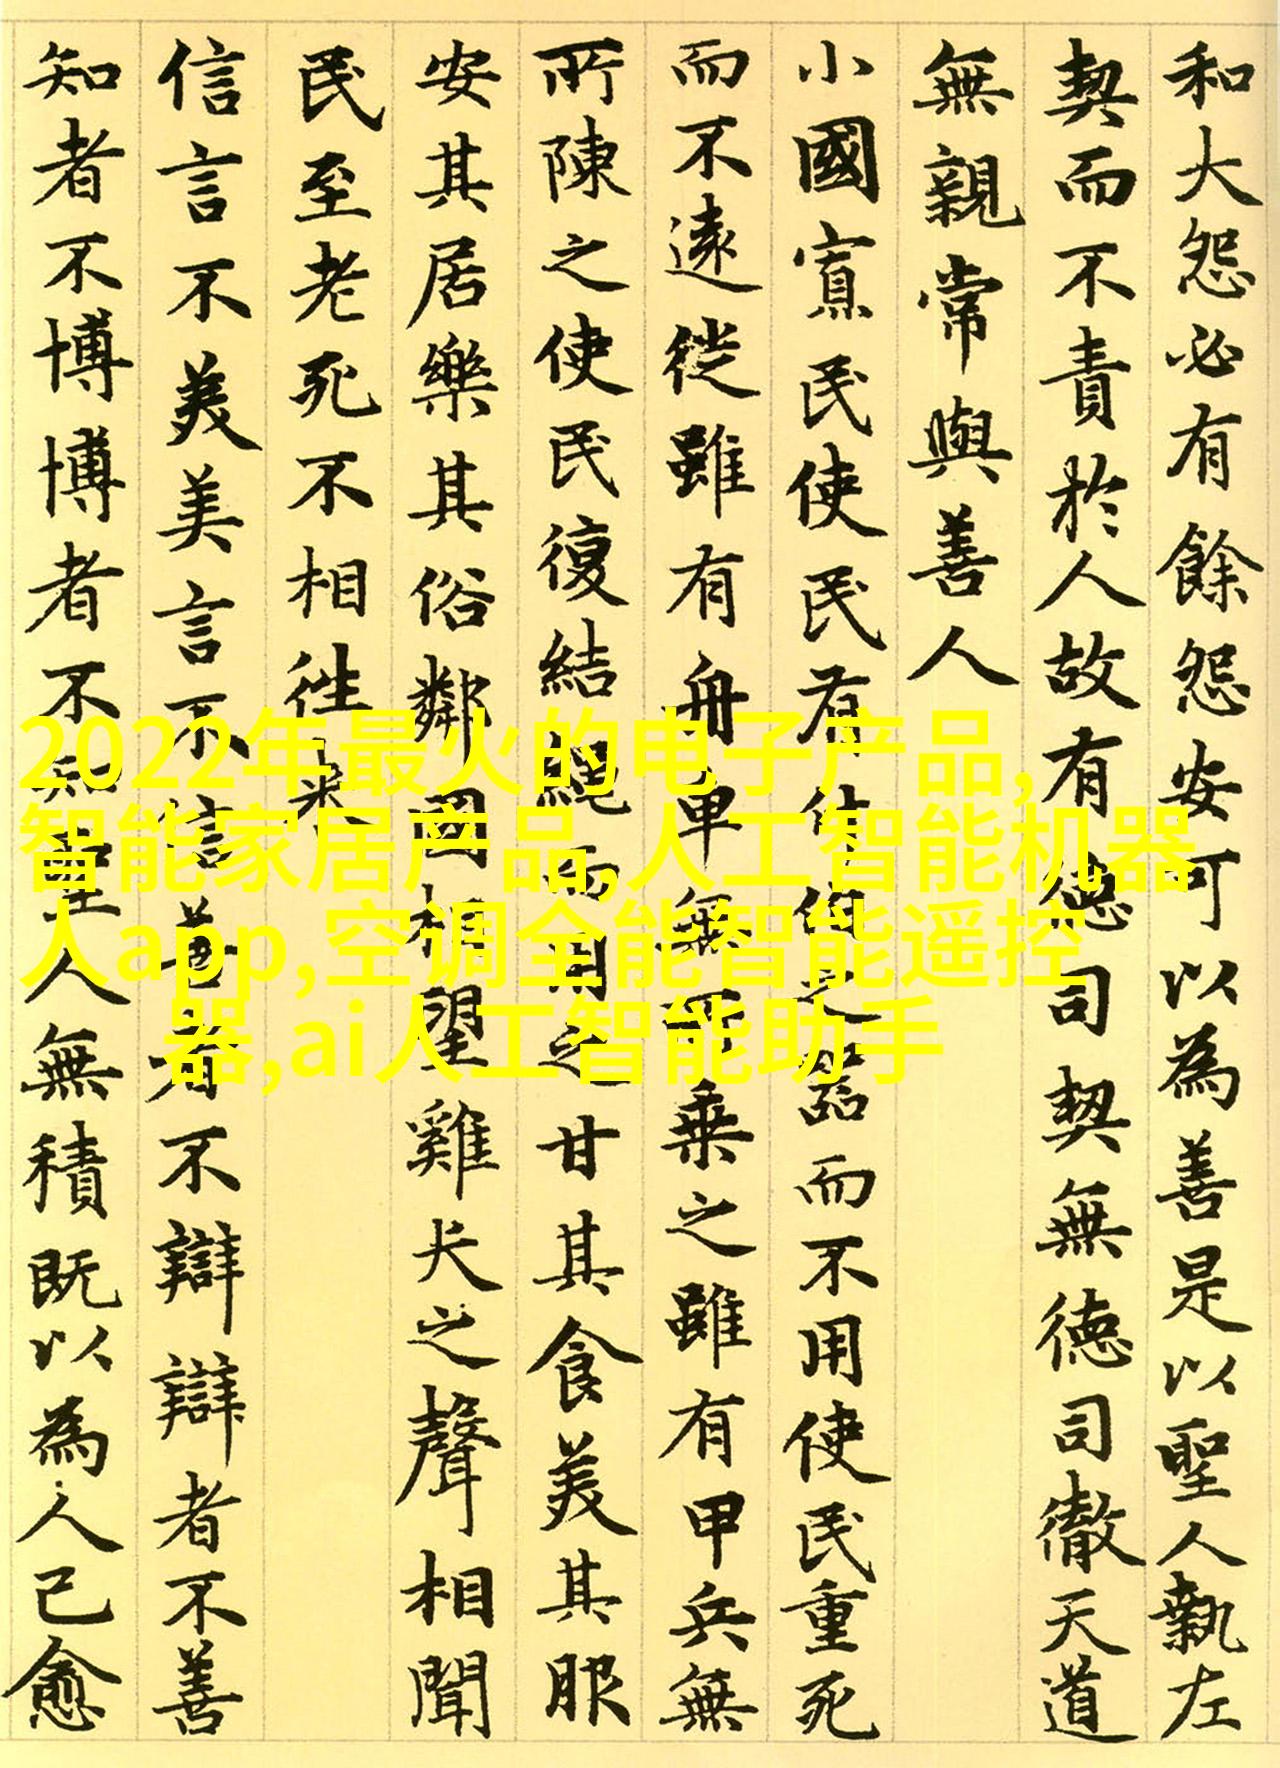 和大怨必有餘怨安可以為善是以聖人執左
契而不責於人故有德司契無德司徹天道
無親常與善人
小國寡民使民有什伯之器而不用使民重死
而不遠徙雖有舟車無所乘之雖有甲兵無
所陳之使民復結繩而用之甘其食美其服
安其居樂其俗鄰國相望雞犬之聲相聞
民至老死不相往来
信言不美美言不信善者不辯辯者不善
知者不博博者不知聖人無積既以為人己愈
2022年最火的电子产品,
智能家居产品,人工智能机器
人app,空调全能智能遥控
器,ai人工智能助手